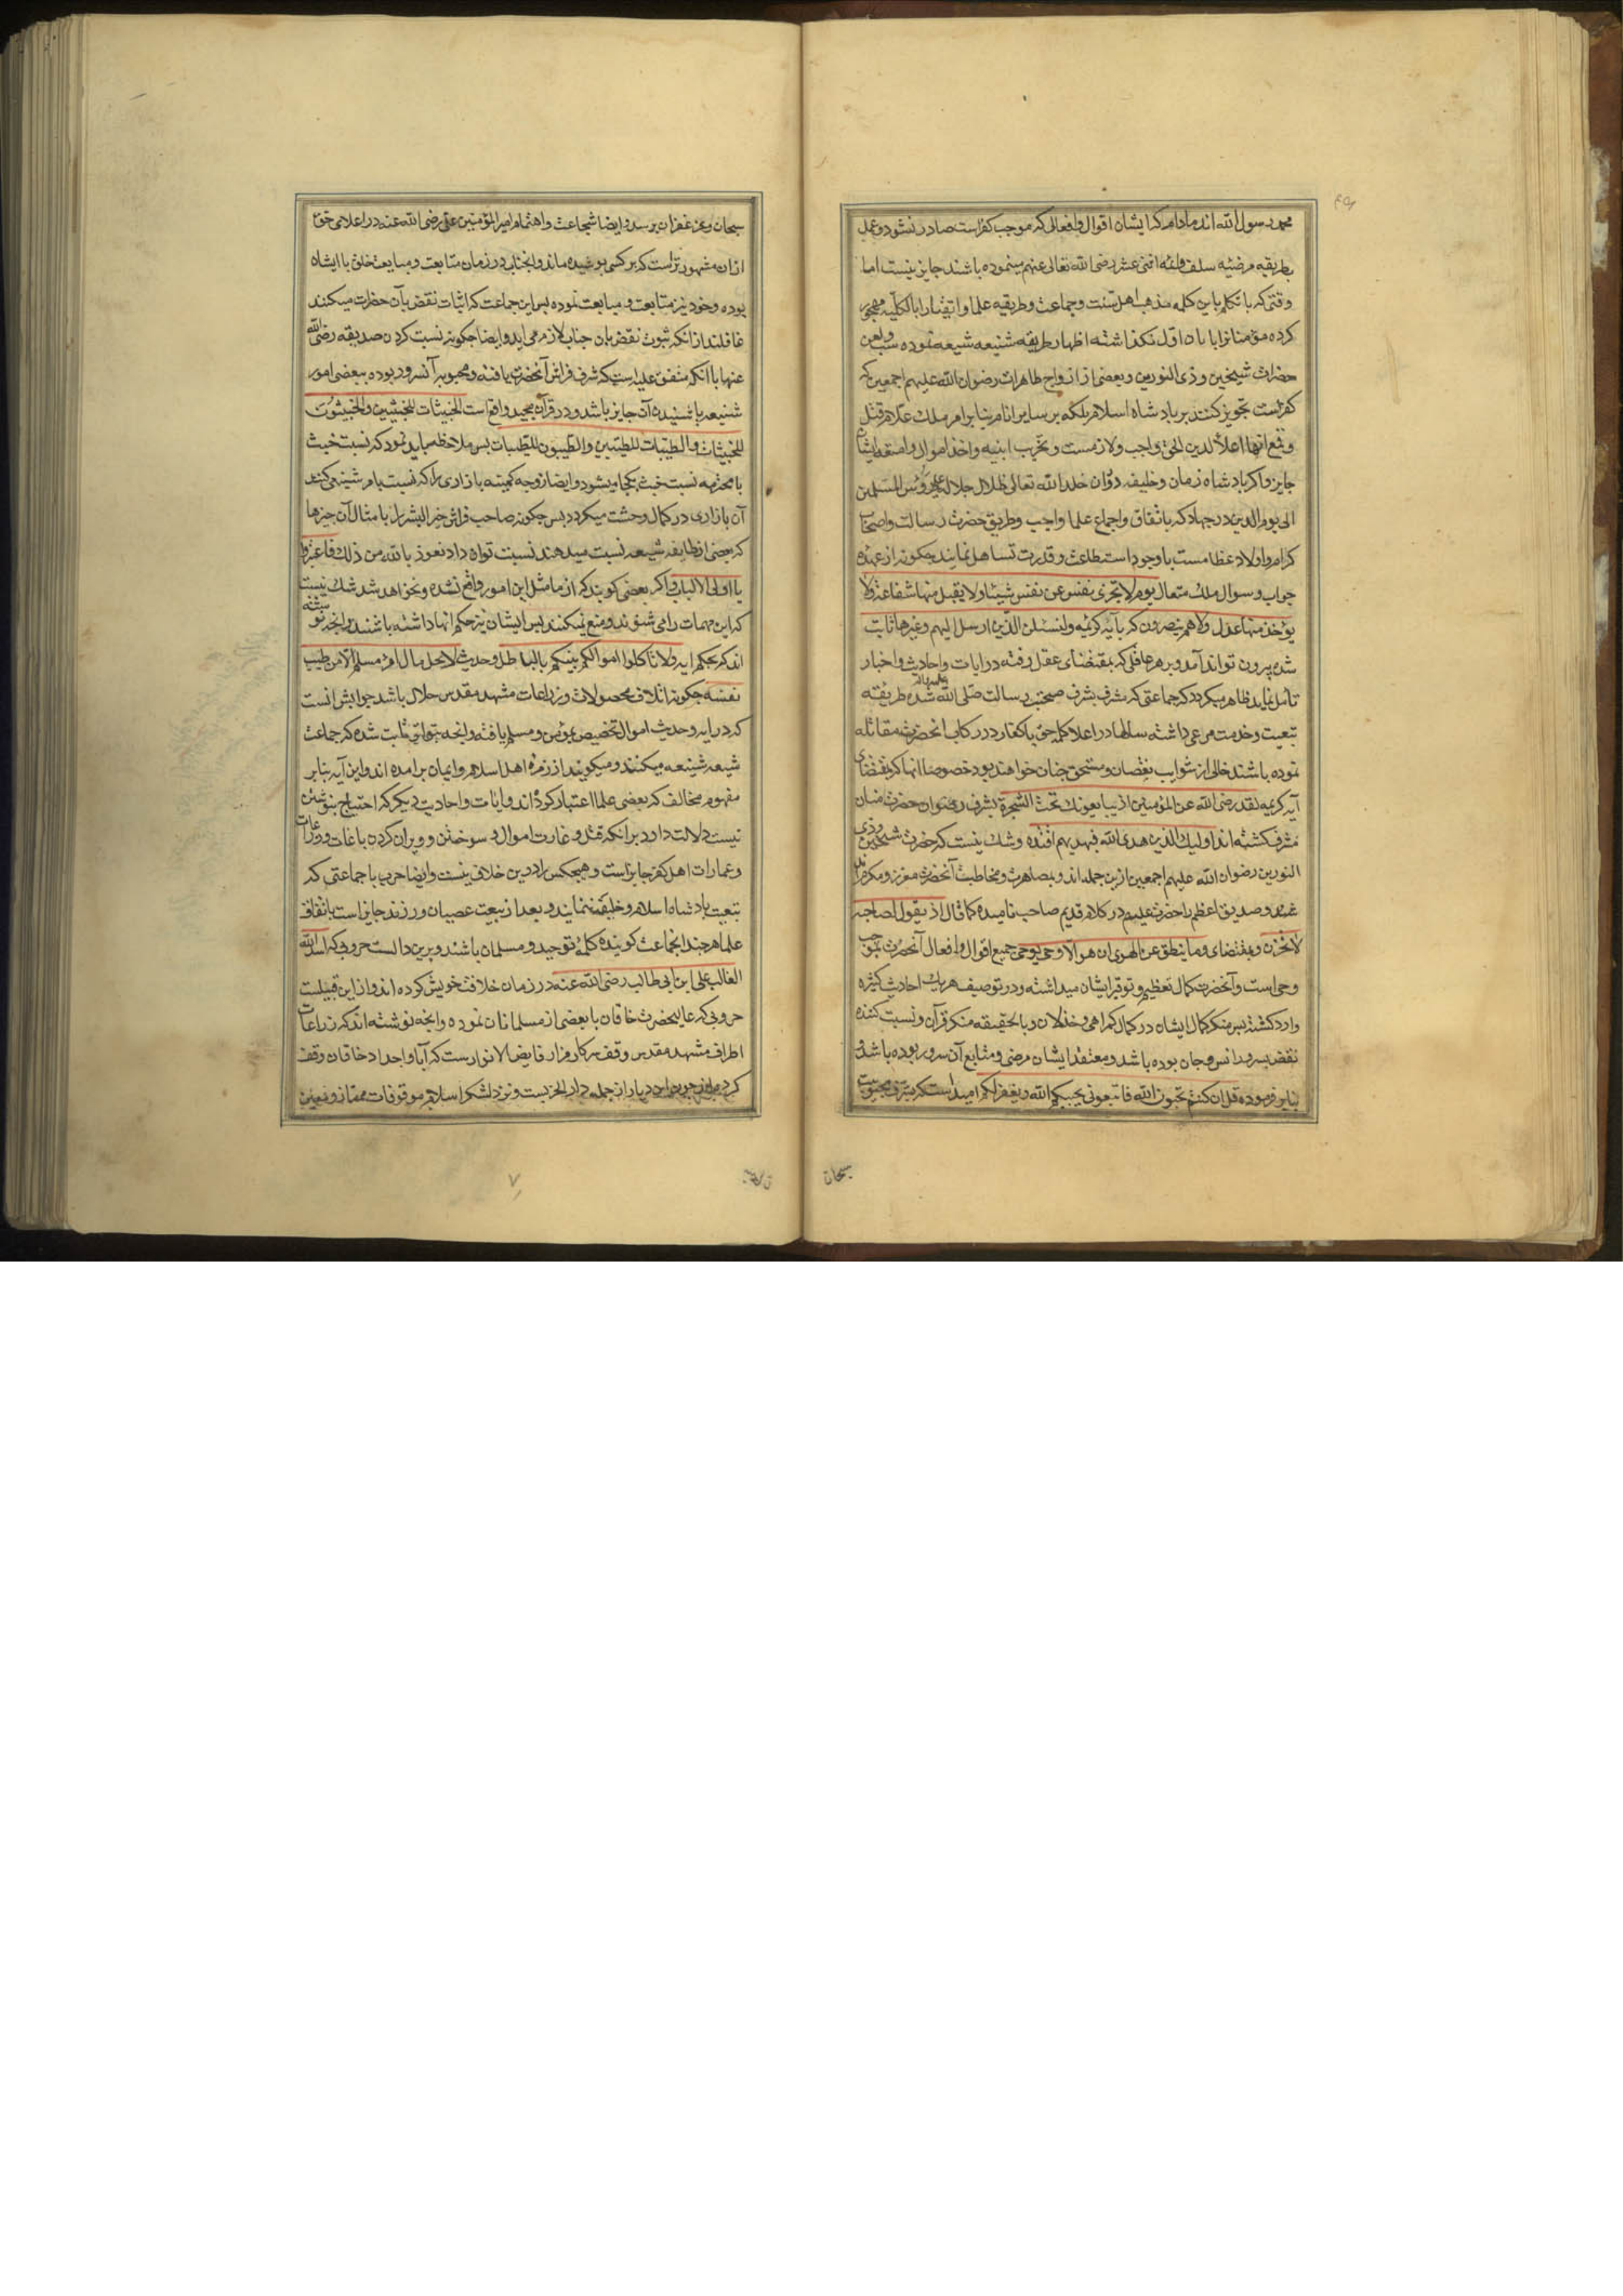 محمد رسول الله اند مادام که ایشان اقوال و افعالی که موجب کفراست صادر نشود و عمل
بطریقه مرضیه سلف و ائمه اثنی عشر رضی الله تعالی عنهم مینموده باشند جایز نیست اما
وقتی که با تکلم باین کلمه مذهب اهل سنت و جماعت و طریقه علما و اتقیا را بالکلیه مهجور
کرده مؤمنانرا باداقل نکذاشته اظهار طریقه شنیعه شیعه نموده سب و لعن
حضرات شیخین و ذی النورین و بعضی از ازواج طاهرات رضوان الله علیهم اجمعین که
کفراست تجویز کنند بر پادشاه اسلام بلکه بر سایر انام بنا بر امر ملک علام قتل
و قمع انها اعلاء لدین الحق واجب و لازمست و تخریب ابنیه و اخذ اموال و امتعه ایشان
جایز و اکر پادشاه زمان و خلیفه دوران خلد الله تعالی ظلال جلاله علی رؤس المسلمین
الی یوم الدین در جهاد که باتفاق و اجماع علما واجب و طریق حضرت رسالت و اصحاب
کرام و اولاد عظامست باوجود استطاعت و قدرت تساهل نمایند چکونه از عهده
جواب و سوال ملک متعال یوم لا تجزی نفس عن نفس شیئا و لا یقبل منها شفاعة و لا
یؤخذ منها عدل و لا هم ینصرون که بآیه کریمه و لنسئلن الذین ارسل الیهم و غیرها ثابت
شده بیرون تواند آمد و بر هر عاقلی که بمقتضای عقل رفته در ایات و احادیث و اخبار
تأمل نماید ظاهر میکردد که جماعتی که مشرف بشرف صحبت رسالت صلی الله علیه و اله شده طریقه
تبعیت و خدمت مرعی داشته سالها در اعلا کلمه حق با کفار در رکاب انحضرت مقاتله
نموده باشند خالی از شوایب نقصان و مستحق جنان خواهند بود خصوصا انها که بمقتضای
آیه کریمه لقد رضی الله عن المؤمنین اذ یبایعونک تحت الشجرة بشرف رضوان حضرت منان
مشرف کشته اند اولیک الذین هدی الله فبهدیهم اقتده و شک نیست که حضرت شیخین و ذی
النورین رضوان الله علیهم اجمعین ازین جمله اند و بمصاهرت و مخاطبت آنحضرت معزز و مکرم اند
و صدیق اعظم را حضرت علیم در کلام قدیم صاحب نامیده کما قال اذ یقول لصاحبه
لا تحزن و بمقتضای و ما ینطق عن الهوی ان هو الا وحی یوحی جمیع اقوال و افعال آنحضرت بموجب
وحی است و آنحضرت کمال تعظیم و توقیر ایشان میداشته و در توصیف هر یک احادیث کثیره
وارد کشته پس منکر کمال ایشان در کمال کمراهی و خذلان و بالحقیقه منکر قرآن و نسبت کننده
نقض بسرور انس و جان بوده باشد و معتقد ایشان مرضی و متابع آن سرور بوده باشد و
بنابر فرموده قل ان کنتم تحبون الله فاتبعونی یحببکم الله و یغفر لکم امید است که بمرتبه محبوبیت
سبحان
سبحان و عز غفران برسد و ایضا شجاعت و اهتمام امیر المؤمنین علی رضی الله عنه در اعلای حق
ازان مشهورتر است که بر کسی پوشیده ماند و انجناب در زمان متابعت و مبایعت خلق با ایشان
بوده و خود نیز متابعت و مبایعت نموده پس این جماعت که اثبات نقض بآن حضرات میکنند
غافلند از انکه ثبوت نقض بان جناب لازم می اید و ایضا چکونه نسبت کردن صدیقه رضی الله
عنها با انکه متفق علیه است که شرف فراش آنحضرت یافته و محبوبه آنسرور بوده ببعضی امور
شنیعه یا شنیدن آن جایز باشد و در قرآن مجید واقع است الخبیثات للخبیثین و الخبیثون
للخبیثات و الطیبات للطیبین و الطیبون للطیبات پس ملاحظه باید نمود که نسبت خبث
بامحترمه نسبت خبث بکجا میشود و ایضا زوجه کمینه بازاری را که نسبت بامر شنیع می کنند
آن بازاری در کمال وحشت میکردد پس چکونه صاحب فراش خیر البشر را با مثال آن چیزها
که بعضی از طایفه شیعه نسبت میدهند نسبت توان داد نعوذ بالله من ذلک فاعتبروا
یا اولی الالباب و اکر بعضی کویند که از ما مثل این امور واقع نشده و نخواهد شد شک نیست
که این مهمات را می شنوند و منع نمیکنند پس ایشان نیز حکم انها داشته باشند و انچه نوشته
اند که بحکم ایه و لا تاکلوا اموالکم بینکم بالباطل و حدیث لا یحل مال امرء مسلم الا من طیب
نفسه چکونه اتلاف محصولات و زراعات مشهد مقدس حلال باشد جوابش انست
که در ایه و حدیث اموال تخصیص بمؤمن و مسلم یافته و انچه بتواتر ثابت شده که جماعت
شیعه شنیعه میکنند و میکویند از زمره اهل اسلام و ایمان برامده اند و این آیه بنابر
مفهوم مخالف که بعضی علما اعتبار کرده اند و ایات و احادیث دیکر که احتیاج بنوشتن
نیست دلالت دارد برانکه قتل و غارت اموال و سوختن و ویران کردن باغات و زراعات
و عمارات اهل کفر جایز است و هیچکس را درین خلاف نیست و ایضا حرب با جماعتی که
تبعیت پادشاه اسلام و خلیفه ننمایند و بعد از بیعت عصیان ورزند جایز است باتفاق
علما هر چند انجماعت کوینده کلمه توحید و مسلمان باشند و برین دالست حروبی که اسد الله
الغالب علی ابن ابی طالب رضی الله عنه در زمان خلافت خویش کرده اند و از این قبیلست
حروبی که عالیحضرت خاقان با بعضی از مسلمانان نموده و انچه نوشته اند که زراعات
اطراف مشهد مقدس وقف سرکار مزار فایض الانوار ست که آبا و اجداد خاقان وقف
کرده اند دیار از جمله دار الحربست و نزد لشکر اسلام موقوفات ممتاز و معین
۷